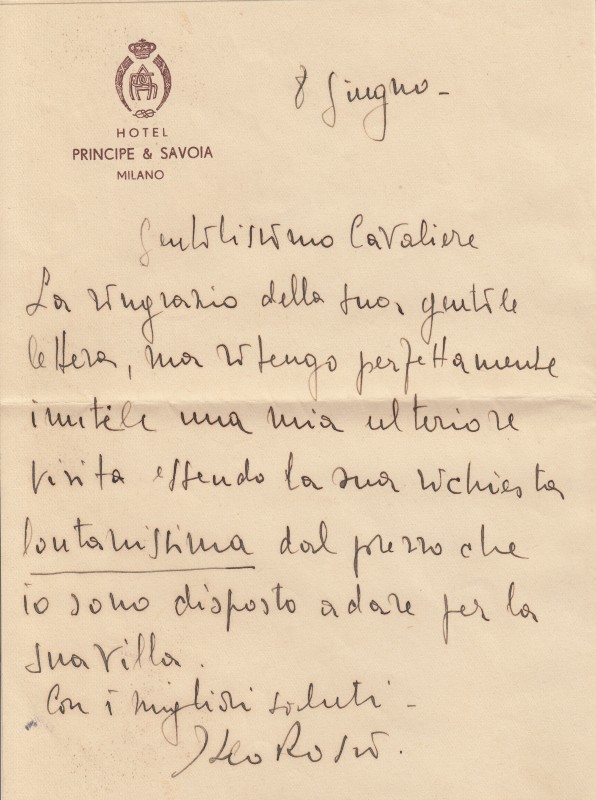 HOTEL
PRINCIPE & SAVOIA
MILANO
8 Giugno -
Gentilissimo Cavaliere
La ringrazio della sua gentile
lettera, ma ritengo perfettamente
inutile una mia ulteriore
visita essendo la sua richiesta
lontanissima dal prezzo che
io sono disposto a dare per la
sua villa.
Con i migliori saluti -